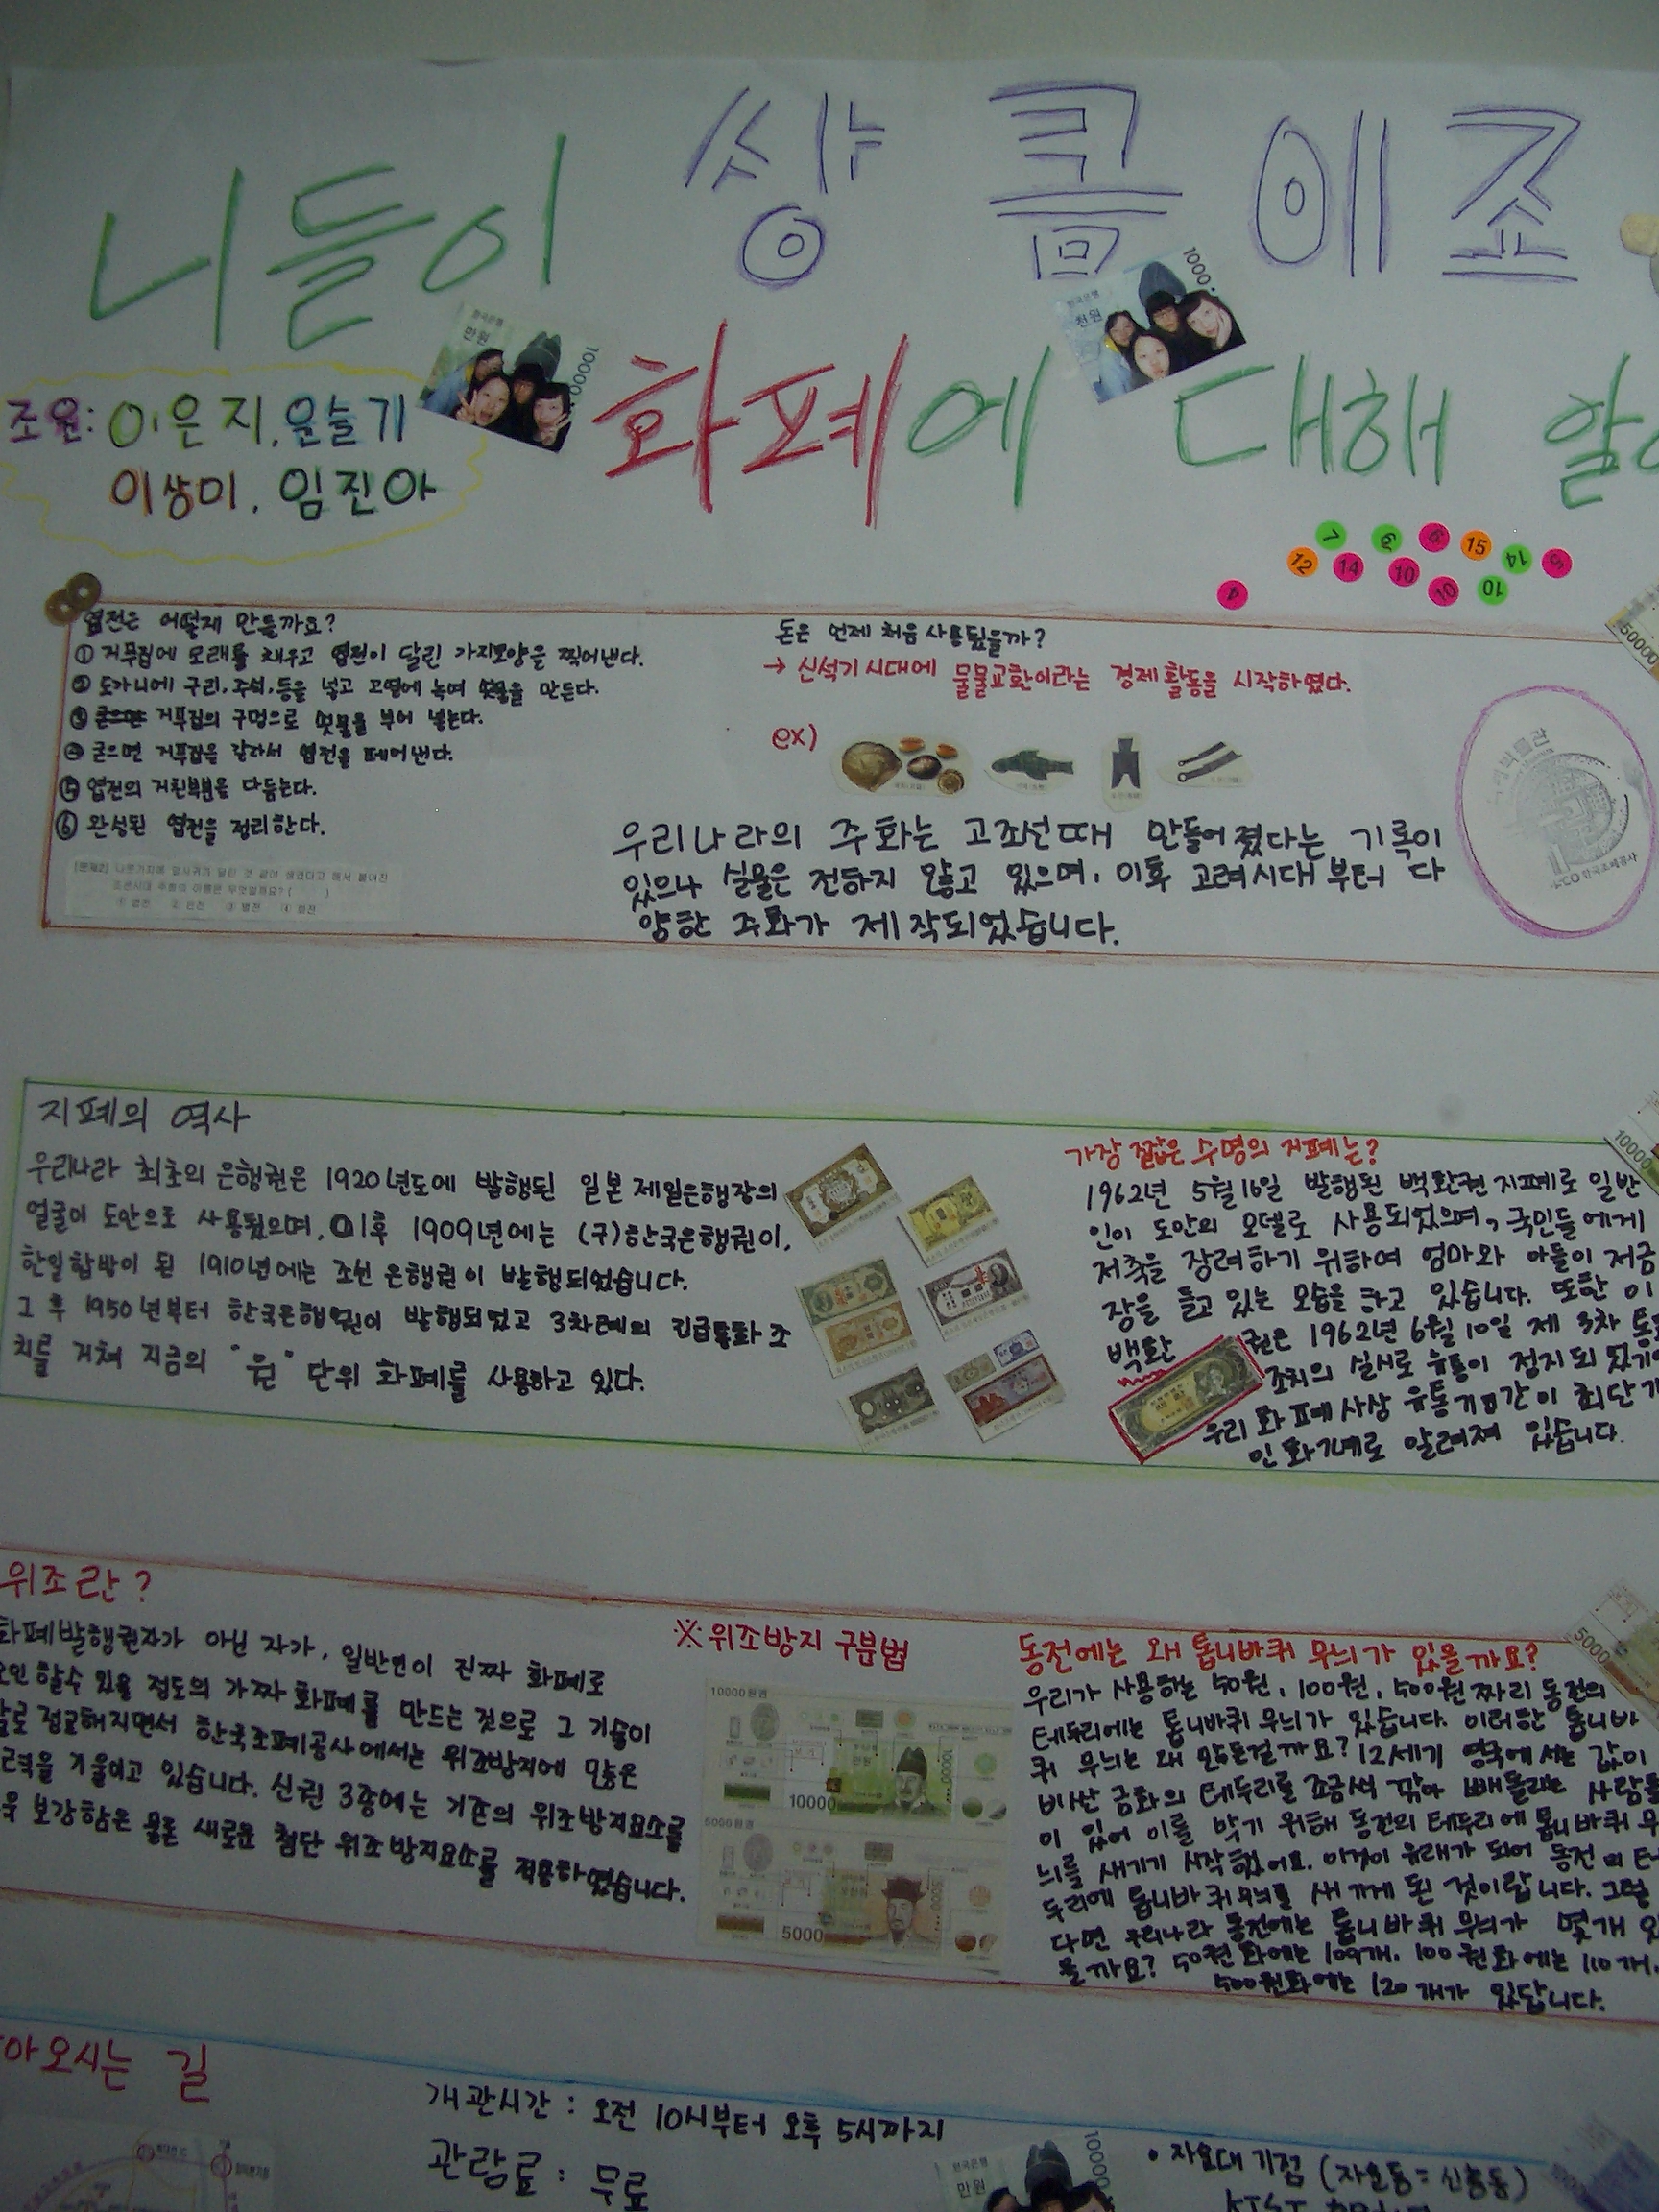 니들이 상콤에조
화폐에 대해 알
조원: 이은지, 윤슬기
이상미, 임진아
한국은행
만원
10000
한국은행
천원
1000
7 6 6 15 14 5
12 14 10 10 10
4
엽전은 어떻게 만들까요?
① 거푸집에 모래를 채우고 엽전이 달린 가지모양을 찍어낸다.
② 도가니에 구리, 주석, 등을 넣고 고열에 녹여 쇳물을 만든다.
③ 거푸집의 구멍으로 쇳물을 부어 넣는다.
④ 굳으면 거푸집을 갈라서 엽전을 떼어낸다.
⑤ 엽전의 거친부분을 다듬는다.
⑥ 완성된 엽전을 정리한다.
[문제2] 나뭇가지에 잎사귀가 달린 것 같이 생겼다고 해서 붙여진
조선시대 주화의 이름은 무엇일까요? ( )
① 엽전 ③ 별전
돈은 언제 처음 사용됬을까?
→ 신석기 시대에 물물교환이라는 경제활동을 시작하였다.
ex)
우리나라의 주화는 고조선때 만들어졌다는 기록이
있으나 실물은 전하지 않고 있으며, 이후 고려시대부터 다
양한 주화가 제작되었습니다.
화폐박물관
한국조폐공사
50000
지폐의 역사
우리나라 최초의 은행권은 1920년도에 발행된 일본 제일은행장의
얼굴이 도안으로 사용됬으며, 이후 1909년에는 (구)한국은행권이,
한일합방이 된 1910년에는 조선 은행권이 발행되었습니다.
그 후 1950년부터 한국은행권이 발행되었고 3차례의 긴급통화 조
치를 거쳐 지금의 "원" 단위 화폐를 사용하고 있다.
가장 짧은 수명의 지폐는?
1962년 5월 16일 발행된 백환권 지폐로 일반
인이 도안의 모델로 사용되었으며, 국민들에게
저축을 장려하기 위하여 엄마와 아들이 저금
장을 들고 있는 모습을 하고 있습니다. 또한 이
백환권은 1962년 6월 10일 제 3차 통
조치의 실시로 유통이 정지되었기
우리 화폐 사상 유통기간이 최단
인 화폐로 알려져 있습니다.
10000
위조란?
화폐발행권자가 아닌 자가, 일반인이 진짜 화폐로
오인 할수 있을 정도의 가짜 화폐를 만드는 것으로 그 기술이
로 정교해지면서 한국조폐공사에서는 위조방지에 많은
력을 기울이고 있습니다. 신권 3종에는 기존의 위조방지요소를
욱 보강함은 물론 새로운 첨단 위조방지요소를 적용하였습니다.
※위조방지 구분법
10000원권
10000
5000원권
5000
동전에는 왜 톱니바퀴 무늬가 있을까요?
우리가 사용하는 50원, 100원, 500원 짜리 동전의
테두리에는 톱니바퀴 무늬가 있습니다. 이러한 톱니바
퀴 무늬는 왜 만든걸까요? 12세기 영국에서는 값이
비싼 금화의 테두리를 조금씩 깎아 빼돌리는 사람들
이 있어 이를 막기 위해 동전의 테두리에 톱니바퀴 무
늬를 새기기 시작했어요. 이것이 유래가 되어 동전의 테
두리에 톱니바퀴무늬를 새기게 된 것이랍니다. 그렇
다면 우리나라 동전에는 톱니바퀴 무늬가 몇개 있
을까요? 50원화에는 109개, 100원화에는 110개,
500원화에는 120개가 있답니다.
5000
아오시는 길
개관시간 : 오전 10시부터 오후 5시까지
관람료 : 무료
한국은행
만원
10000
• 자운대 기점 (자운동 = 신흥동)